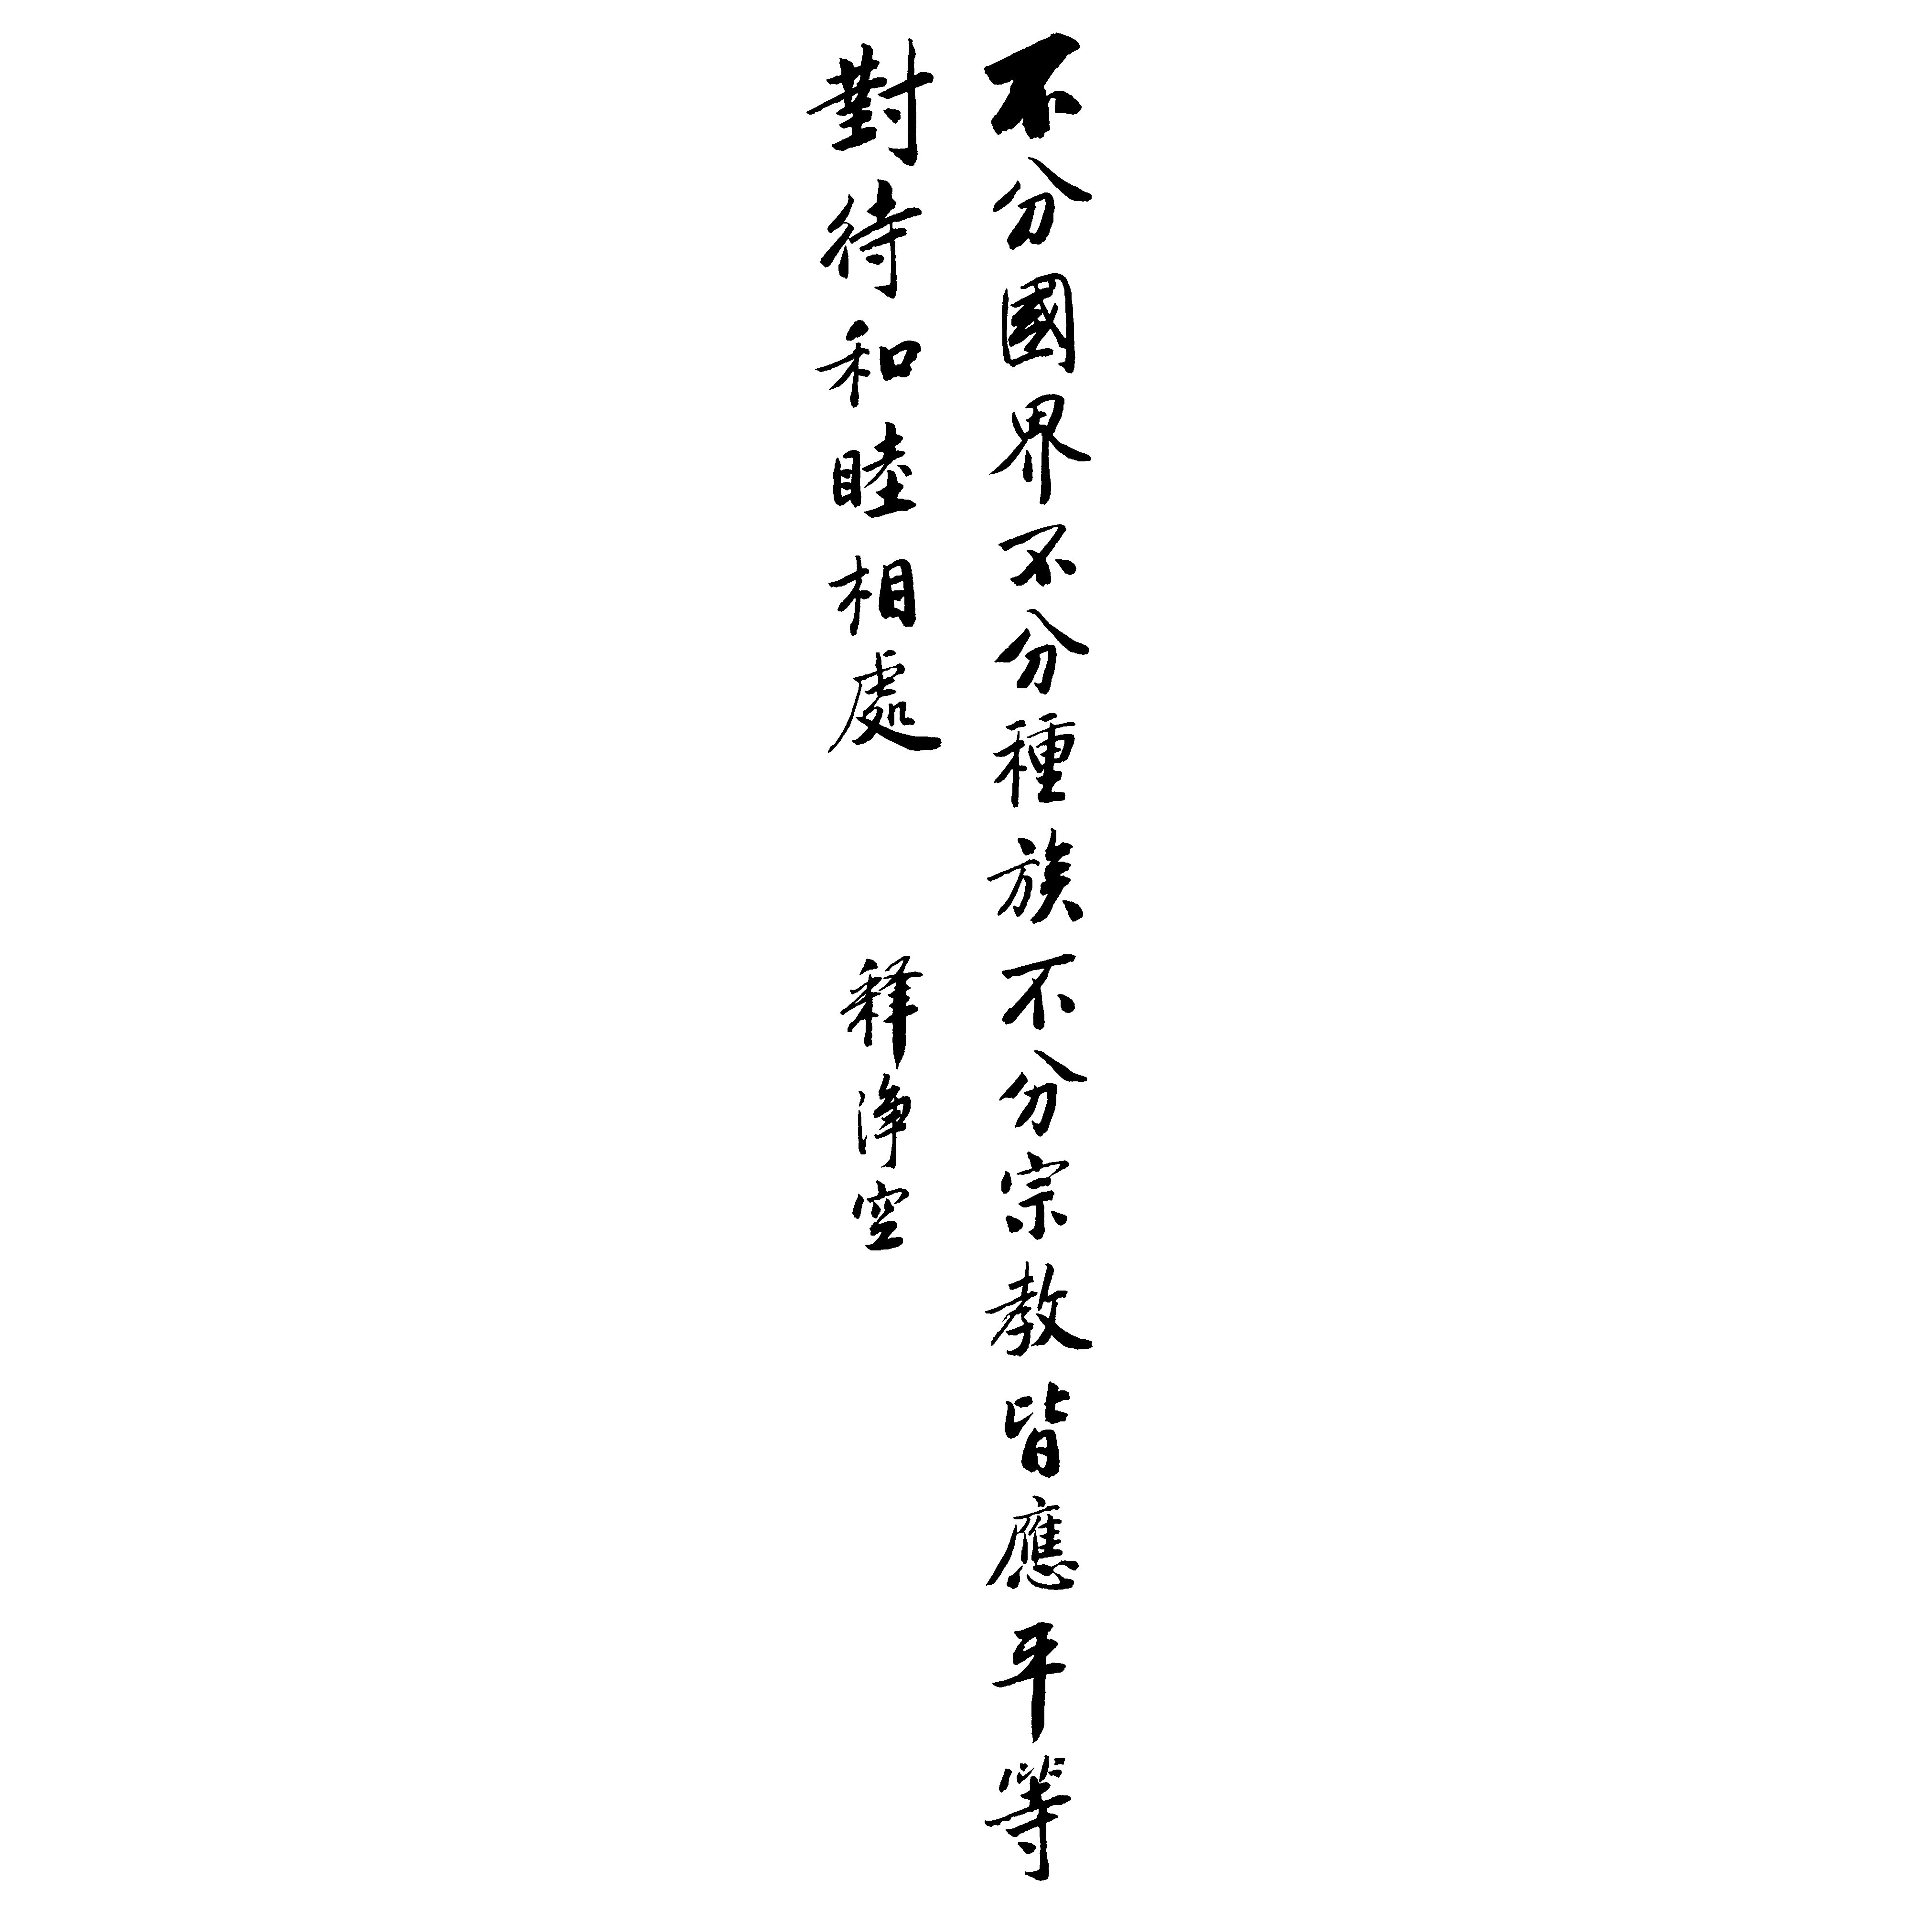 不分國界不分種族不分宗教皆應平等
對待和睦相處 釋淨空